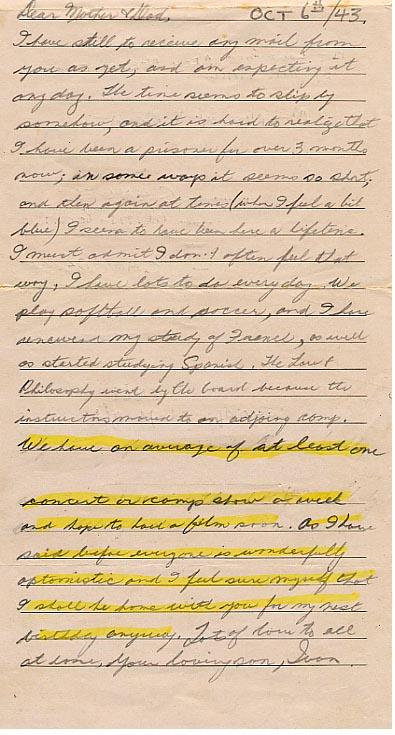 Dear Mother & Dad, OCT 6th/43.
I have still to receive any mail from
you as yet, and am expecting it
any day. The time seems to slip by
somehow, and it is hard to realize that
I have been a prisoner for over 3 months
now; in some ways it seems so short,
and then again at times (when I feel a bit
blue) I seem to have been here a lifetime.
I must admit I don't often feel that
way. I have lots to do every day. We
play softball and soccer, and I have
renewed my study of French, as well
as started studying Spanish. The Law &
Philosophy went by the board because the
instructors moved to an adjoing camp.
We have an average of at least one
concert or camp show a week
and hope to have a film soon. As I have
said before everyone is wonderfully
optomistic and I feel sure myself that
I shall be home with you for my next
birthday anyway. Lots of love to all
at home, Your loving son,